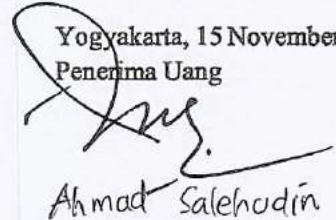 Yogyakarta, 15 November
Penerima Uang
Ahmad Salehudin